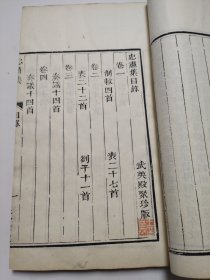 忠肅集目錄
武英殿聚珍版
卷一
表二十七首
卷二
表二十二首 劄子十一首
卷三
奏議十四首
卷四
奏議十四首